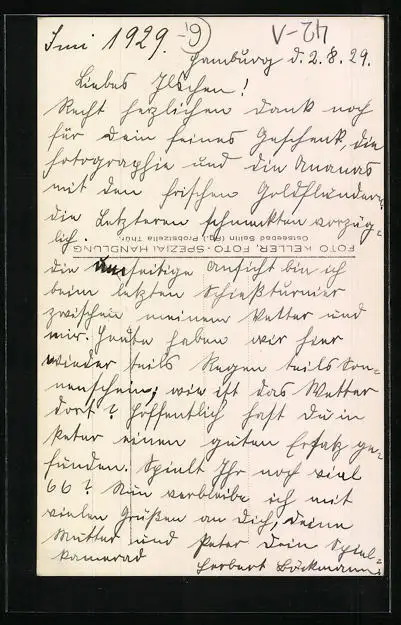 Juni 1929. 9
V-42
Hamburg d. 2.8.29.
Liebes Ilschen!
Recht herzlichen Dank noch
für Dein feines Geschenk, die
Fotographie und die Ananas
mit den frischen Goldflundern,
die Letzteren schmeckten vorzüg-
lich.
FOTO KELLER, FOTO-SPEZIALHANDLUNG
Ostseebad Sellin (Rg.), Probstzella Thür.
Die umseitige Ansicht bin ich
beim letzten Schießturnier
zwischen meinem Vetter und
mir. Heute haben wir hier
wieder teils Regen teils Son-
nenschein; wie ist das Wetter
dort? Hoffentlich hast Du in
Peter einen guten Ersatz ge-
funden. Spielt Ihr noch viel
66? Nun verbleibe ich mit
vielen Grüßen an Dich, Deine
Mutter und Peter Dein Spiel-
kamerad
Herbert Böckmann